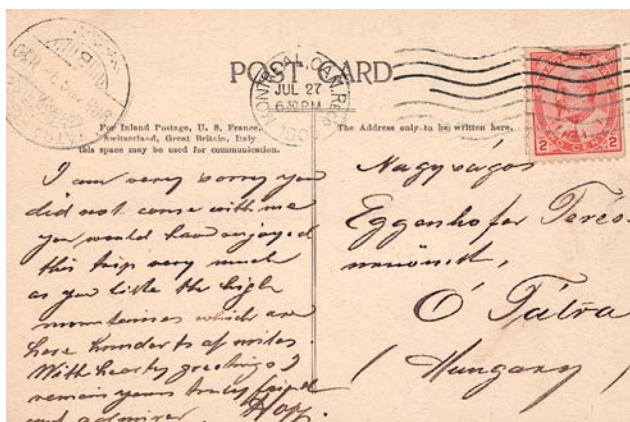 POST CARD
MONTREAL, CAN.
JUL 27
6 30 PM
2 2
For Inland Postage, U. S. France,
Switzerland, Great Britain, Italy
this space may be used for communication.
The Address only to be written here.
I am very sorry you
did not come with me
you would have enjoyed
this trip very much
as you like the high
mountaines which are
here hunderts of miles.
With hearty greetings I
remain yours truly friend
and admirer
Nagyságos
Eggenhofer Teréz
Ó Tátra
(Hungary)